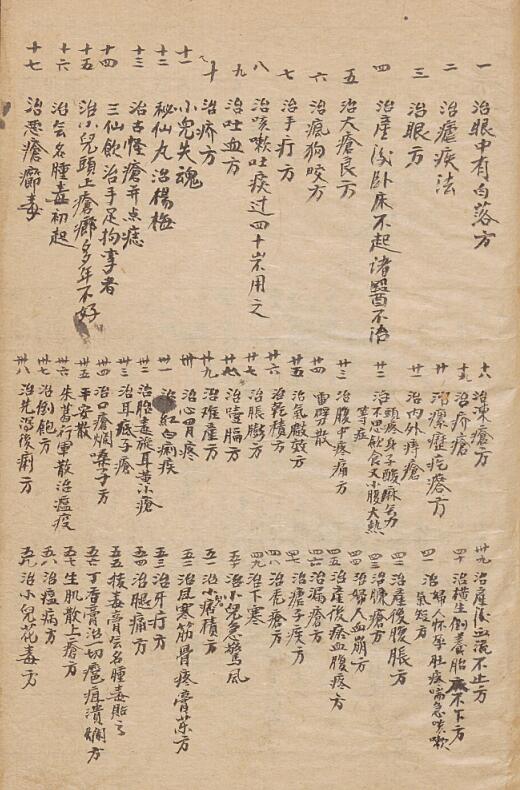 一 治眼中有白落方
二 治瘧疾法
三 治眼方
四 治產後卧床不起諸醫不治
五 治大瘡良方
六 治瘋狗咬方
七 治手疔方
八 治咳嗽吐痰过四十岁用之
九 治吐血方
十 治疥方
十一 小兒失魂
十二 秘仙丸治楊梅
十三 治古怪瘡并点痣
十四 三仙飲治手足拘挛者
十五 治小兒頭上瘡癤多年不好
十六 治無名腫毒初起
十七 治惡瘡癤毒
十八 治凍瘡方
十九 治疥瘡
廿 治瘰癧疙瘩方
廿一 治内外痔瘡
廿二 治頭疼身子酸麻無力不思飲食又小腹大熱等症
廿三 治腹中疼痛方
廿四 雷劈散
廿五 治氣厥效方
廿六 治乾積方
廿七 治脹膨方
廿八 治噎膈方
廿九 治难產方
卅 治心胃疼
卅一 治紅白痢疾
卅二 治胎毒旋耳黄水瘡
卅三 治耳底子瘡
卅四 治口瘡爛嗓子方
卅五 平安散
卅六 朱葛行軍散治瘟疫
卅七 治倒飽方
卅八 治先瀉後痢方
卅九 治產後血流不止方
四十 治横生倒養胎衣不下方
四一 治婦人怀孕肚疼喘急咳嗽氣短方
四二 治產後腹脹方
四三 治臁瘡方
四四 治婦人血崩方
四五 治產後瘀血腹疼方
四六 治漏瘡方
四七 治瘩子疾方
四八 治禿瘡方
四九 治下寒
五十 治小兒急驚風
五一 治小兒積方
五二 治風寒筋骨疼膏葯方
五三 治牙疔方
五四 治腿痛方
五五 拔毒膏無名腫毒貼之
五六 丁香膏治一切瘡疽潰爛方
五七 生肌散上瘡方
五八 治瘟病方
五九 治小兒花毒方